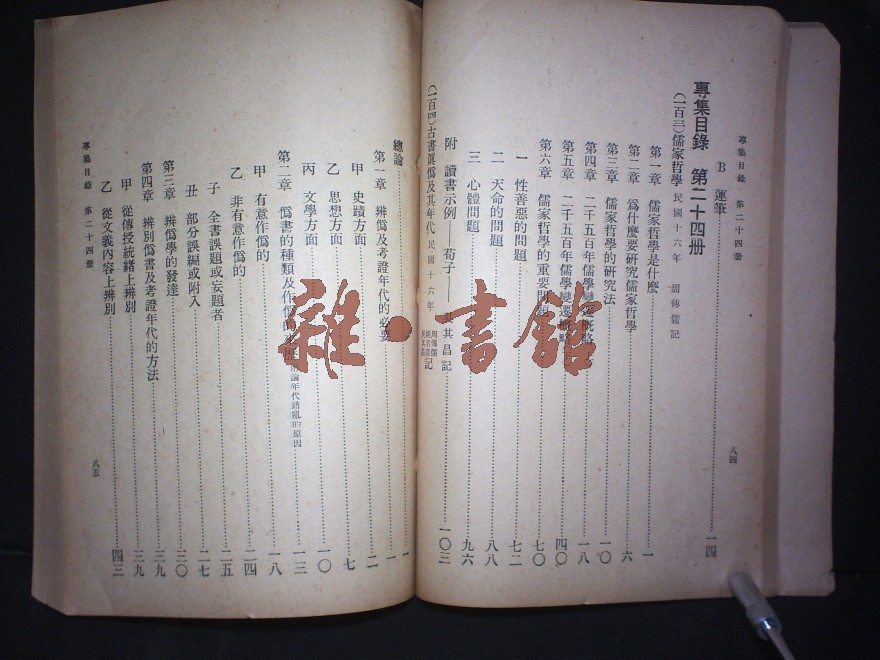 專集目錄 第二十四册
八四
B 運筆……一四
專集目錄 第二十四册
(一百三)儒家哲學 民國十六年 周傳儒記
第一章 儒家哲學是什麼……一
第二章 爲什麼要研究儒家哲學……六
第三章 儒家哲學的研究法……一〇
第四章 二千五百年儒學變遷概略……一八
第五章 二千五百年儒學變遷概略……四〇
第六章 儒家哲學的重要問題……七〇
一 性善惡的問題……七二
二 天命的問題……八八
三 心體問題……九六
附 讀書示例——荀子—— 其昌記……一〇三
(一百四)古書眞僞及其年代 民國十六年 記
總論……一
第一章 辨僞及考證年代的必要……一
甲 史蹟方面……二
乙 思想方面……七
丙 文學方面……一〇
第二章 僞書的種類及作僞的來歷 論年代錯亂的原因……一三
甲 有意作僞的……一八
乙 非有意作僞的……二四
子 全書誤題或妄題者……二五
丑 部分誤編或附入……二七
第三章 辨僞學的發達……三〇
第四章 辨別僞書及考證年代的方法……三九
甲 從傳授統緒上辨別……三九
乙 從文義內容上辨別……四三
專集目錄 第二十四册
八五
雜·書館